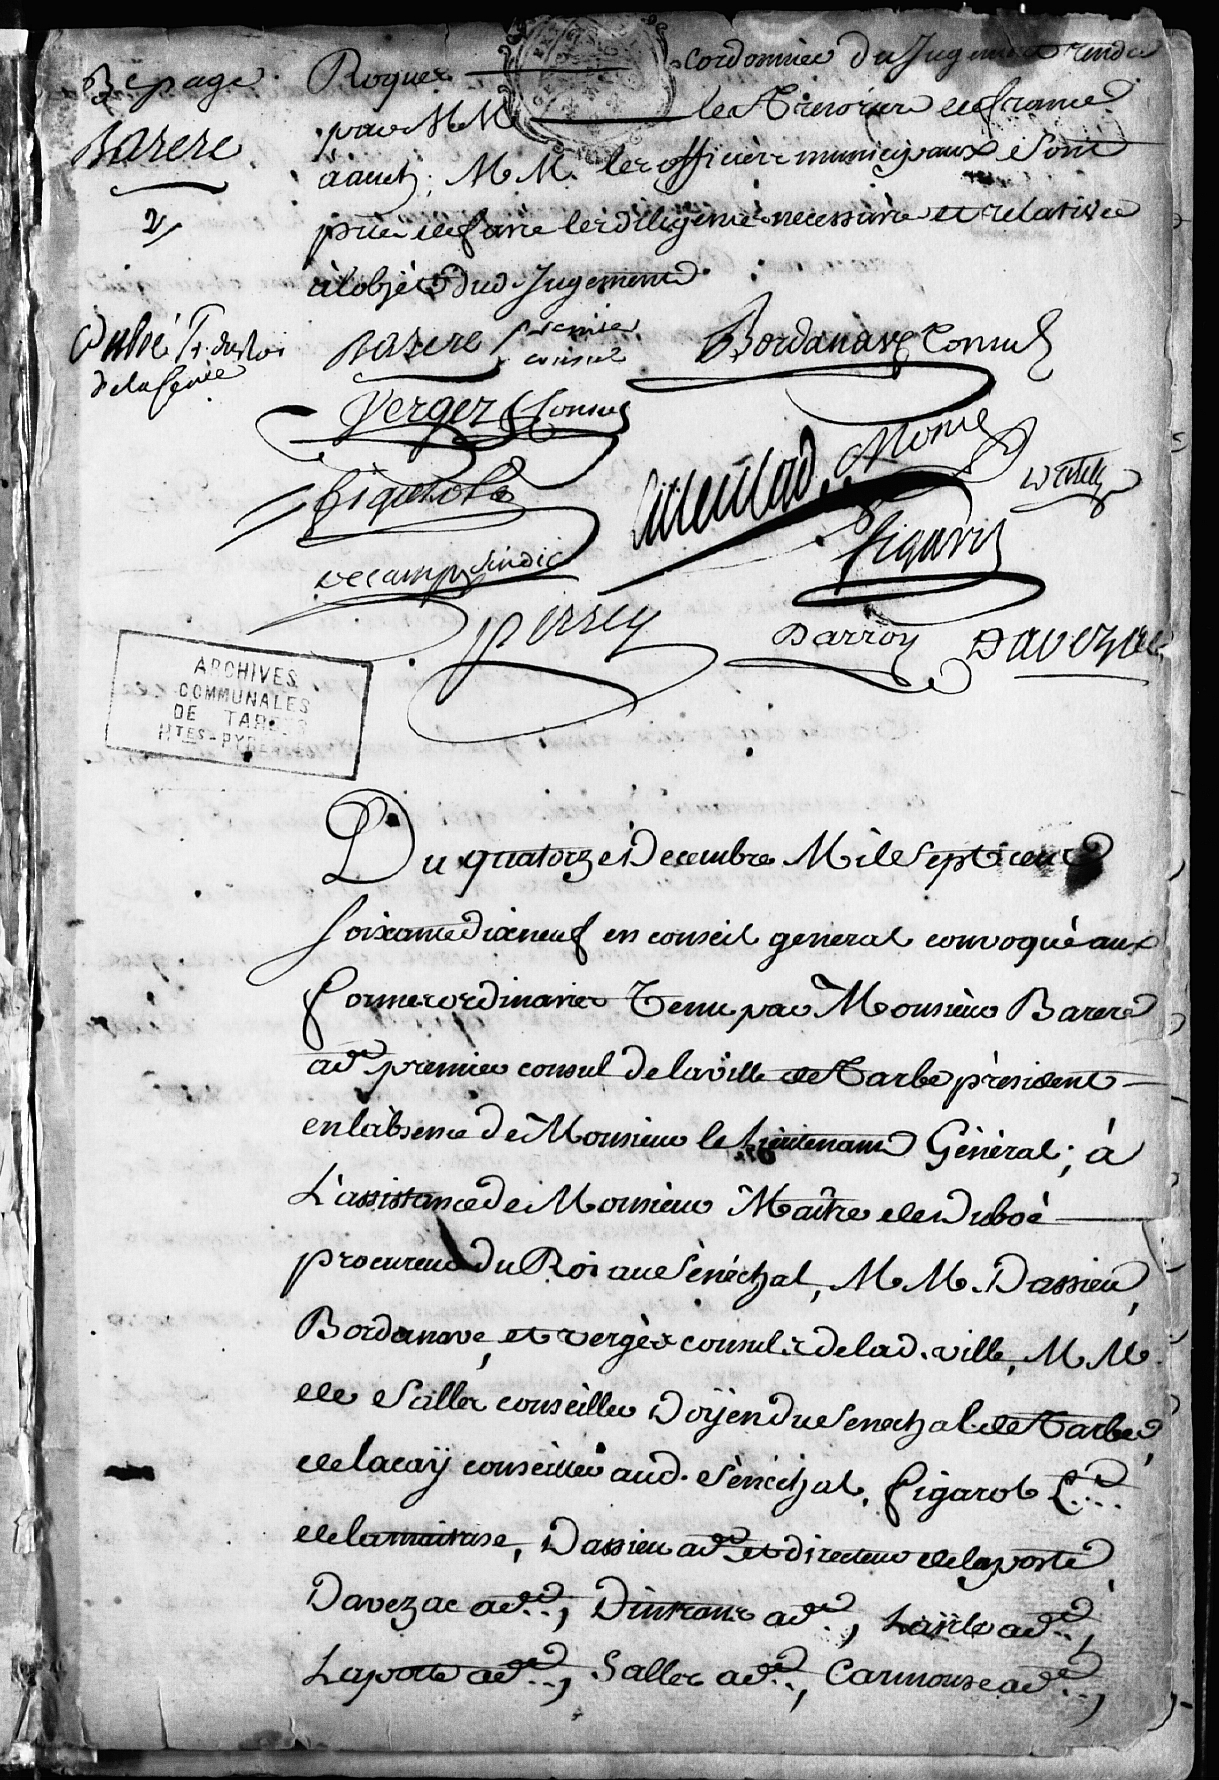 3e page
Barere
2/
Roques cordonnier du Jugement rendu
par MM les Tresorier de france
à auch; MM. les officiers municipaux sont
prié de faire les diligence necessaire et relative
à l'objèt dud. Jugement
Barere premier consul
Bordanave Consul
Verges Consul
Monie
Figarol
decamps sindic
Persey
Darroy
Davezac
ARCHIVES
COMMUNALES
DE TARBES
HTES-PYRENEES
Du quatorze Decembre Mil Sept cent
soixante dix neuf en conseil general convoqué aux
formes ordinaires Tenu par Monsieur Barere
ad.t premier consul de la ville de Tarbe président
en l'absence de Monsieur le Lieutenant Général; à
L'assistance de Monsieur Maitre de Duboé
procureur du Roi au Sénéchal, MM. Dassieu,
Bordanave, et vergès consuls de lad. ville, MM.
de Salles conseiller Doÿen du Senechal de Tarbe,
de lacaÿ conseiller aud. Sénéchal, figarol L.t
de la maitrise, Dassieu ad.t et directeur de la poste,
Davezac ad.t, Dintrans ad.t, ad.t,
Laporte ad.t, Salles ad.t, Carmouse ad.t,